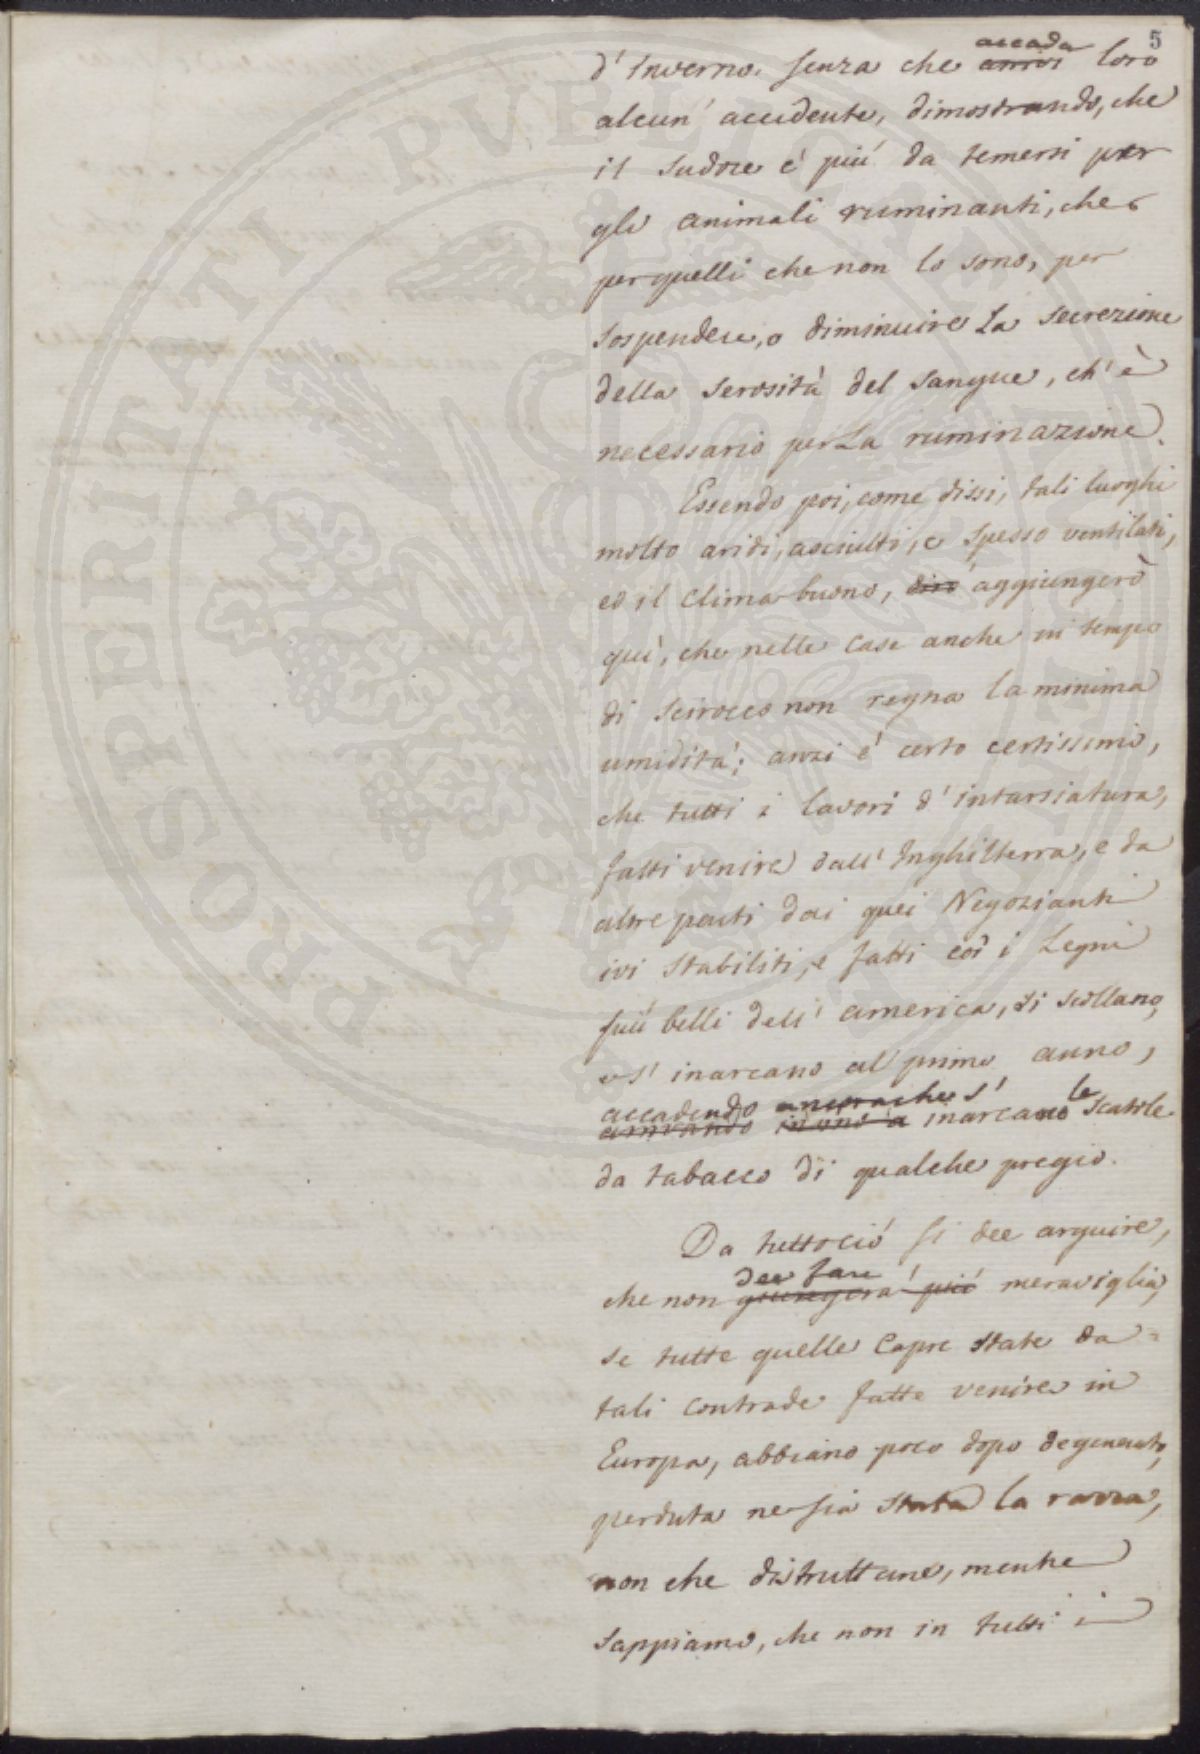 5
d'Inverno, senza che arrivi accada loro
alcun' accidente, dimostrando, che
il sudore é più da temersi per
gli animali ruminanti, che
per quelli che non lo sono, per
sospendere, o diminuire la secrezione
della serosità del sangue, ch' è
necessario per la ruminazione.
Essendo poi, come dissi, tali luoghi
molto aridi, asciutti, e spesso ventilati,
ed il clima buono, dirò aggiungerò
quì, che nelle case anche in tempo
di scirocco non regna la minima
umidità; anzi é certo certissimo,
che tutti i lavori d'intarsiatura,
fatti venire dall' Inghilterra, e da
altre parti dai quei Negozianti
ivi stabiliti, e fatti coi i Legni
più belli dell' america, si scollano,
e s' inarcano al primo anno,
accadendo ancorache s'
arrivando inarcano le scatole
da tabacco di qualche pregio.
Da tuttociò si dee arguire,
dee fare
che non giungerà più meraviglia,
se tutte quelle Capre state da
tali contrade fatte venire in
Europa, abbiano poco dopo degenerato,
perduta ne sia stata la razza,
non che distruttane, mentre
sappiamo, che non in tutti i
PROSPERITATI PVBLICAE